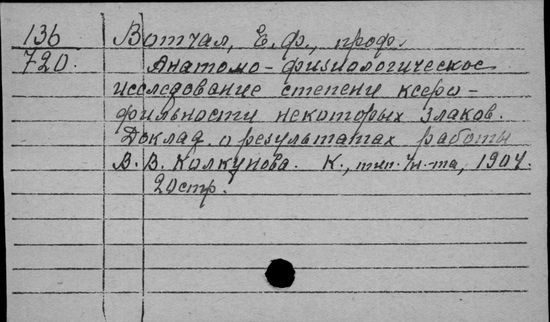 136
720.
Вотчал, Е.Ф., проф.
Анатомо-физиологическое
исследование степени ксеро-
фильности некоторых злаков.
Доклад о результатах работы
В. В. Колкунова. К., тип. Ун-та, 1907.
20стр.